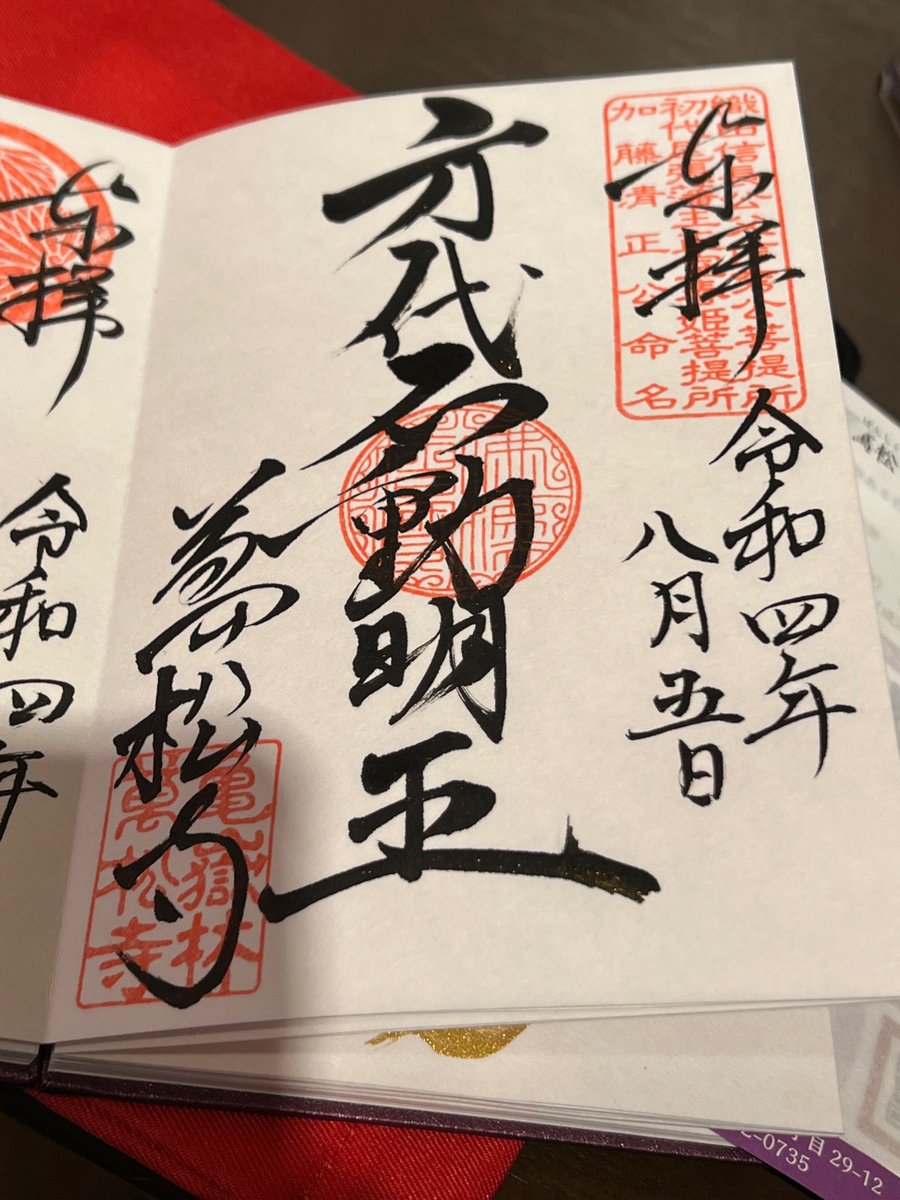 奉拝
織田信長公父信秀公菩提所
初代尾張藩主正室春姫菩提所
加藤清正公命名
令和四年
八月五日
身代不動明王
萬松寺
亀嶽林
萬松寺
奉拝
令和四年
丁目29-12
-0735